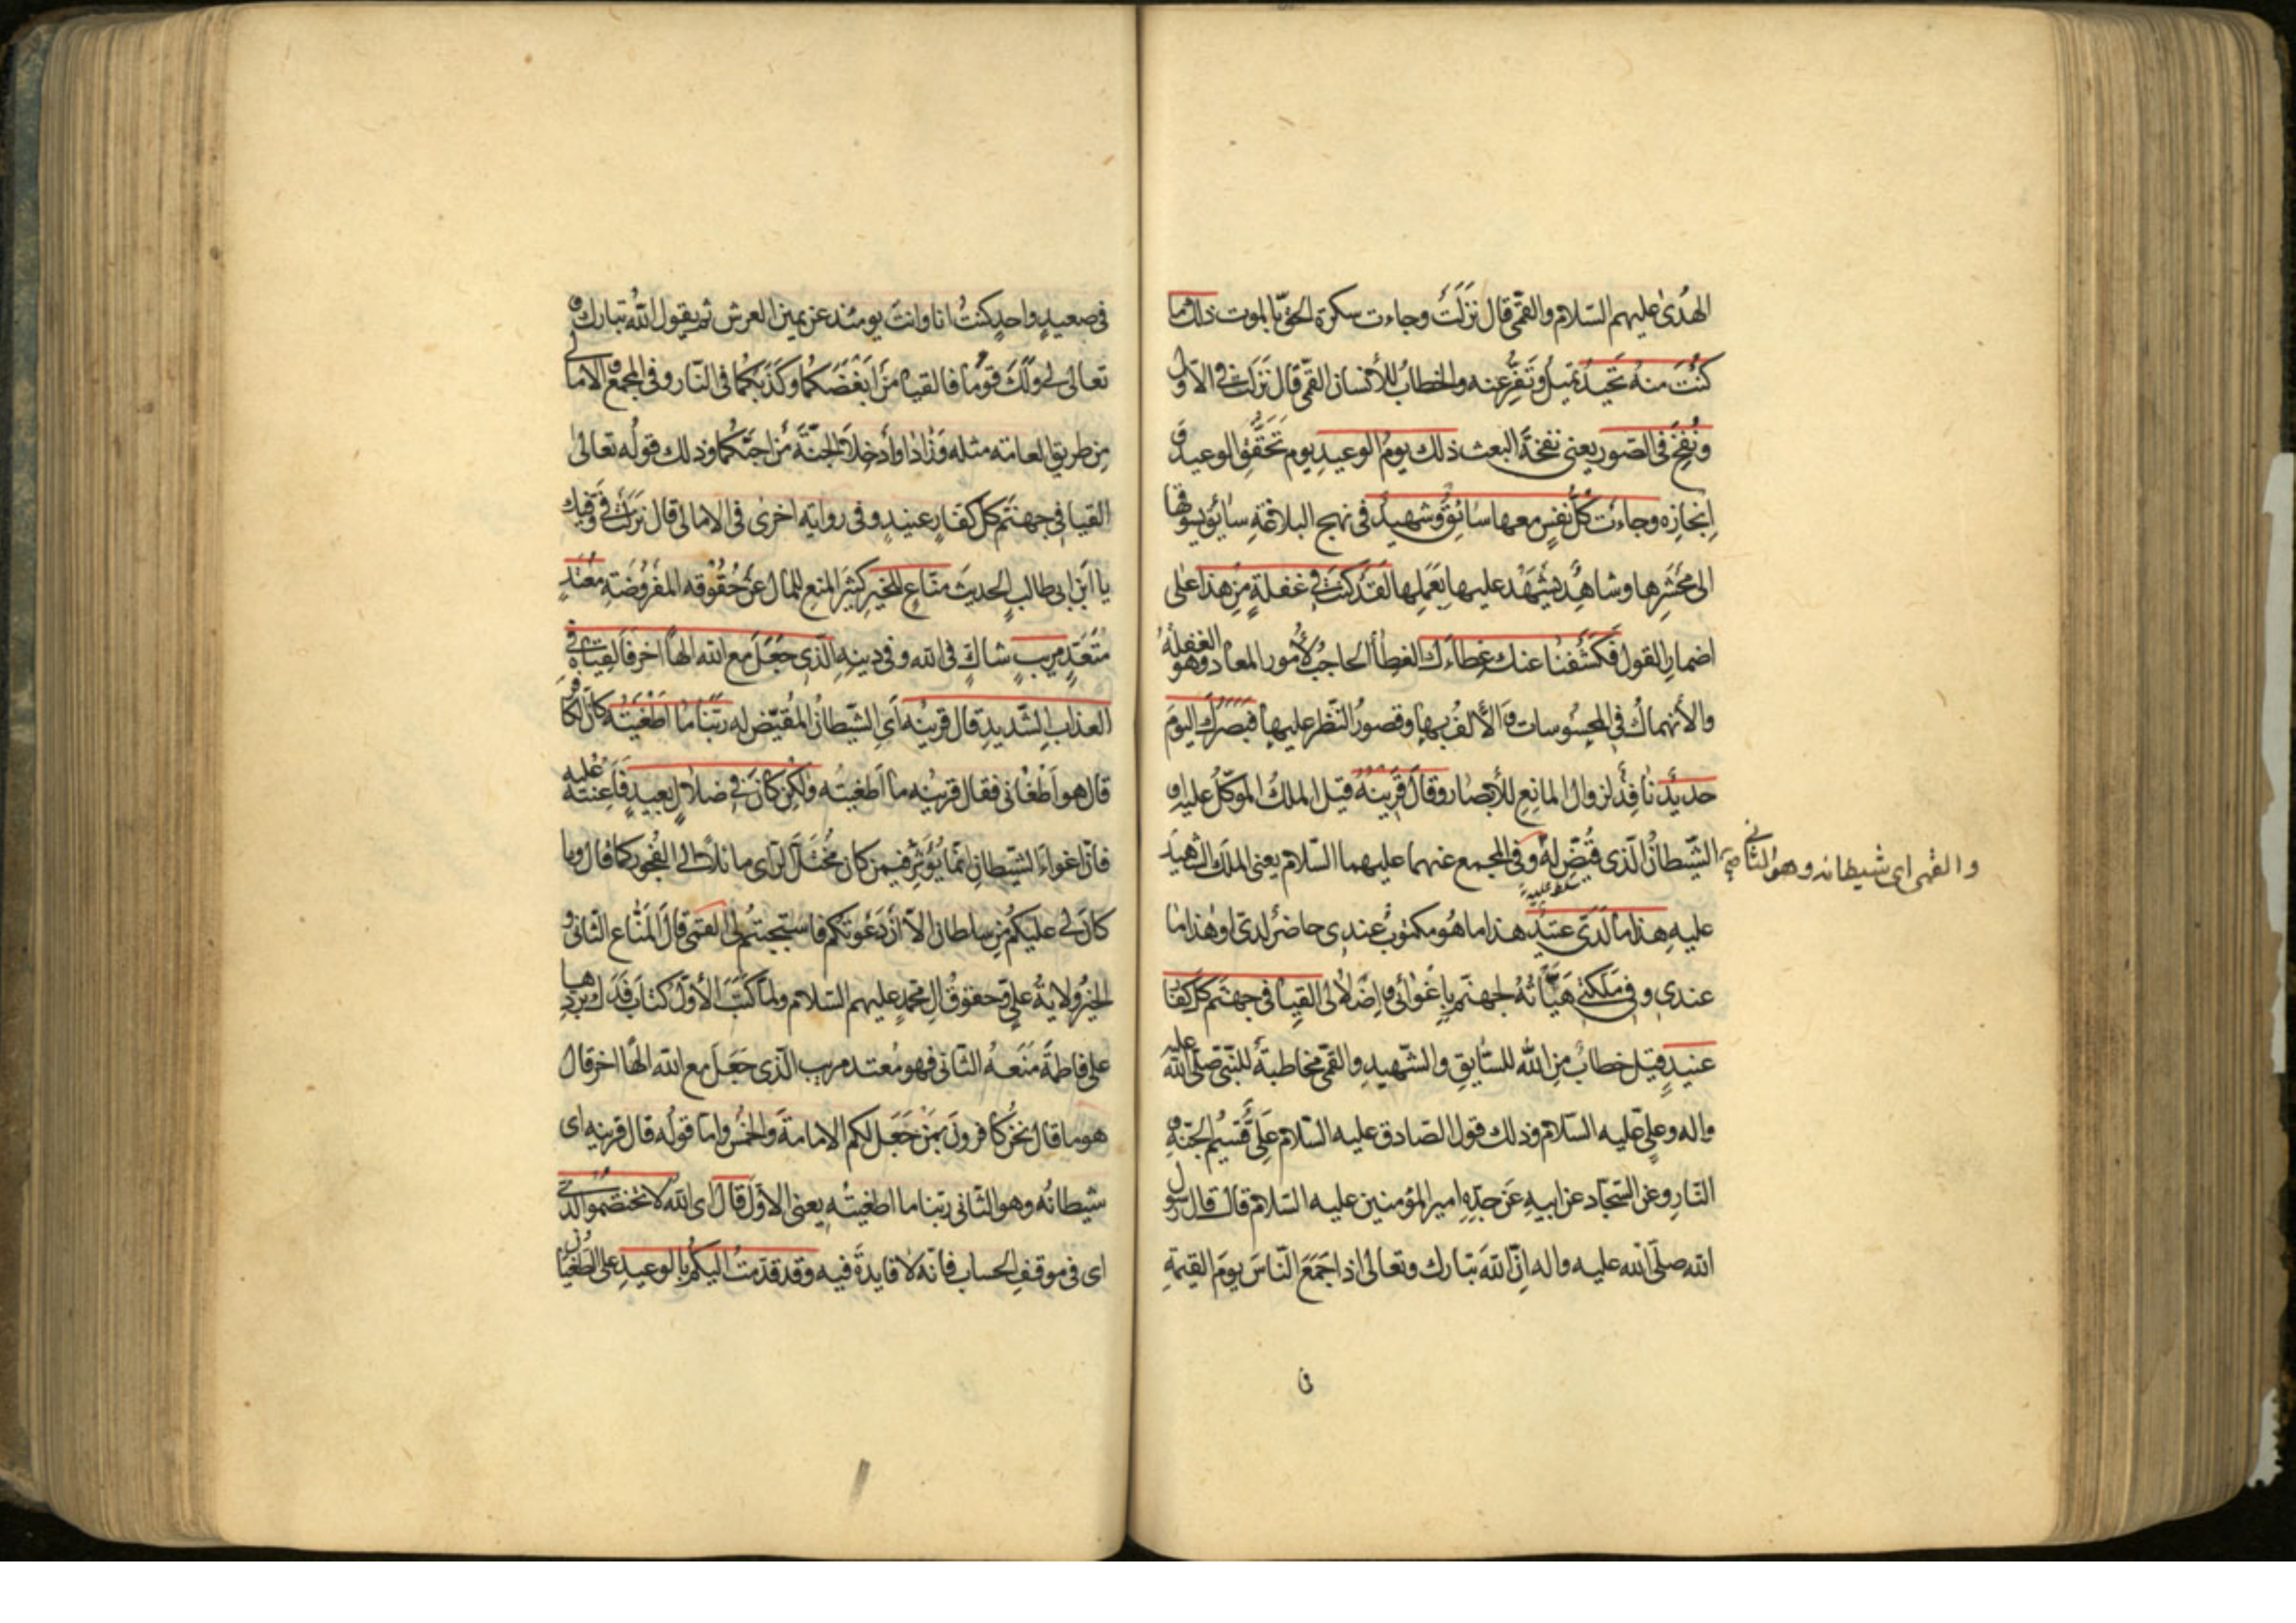 الهُدىٰ عليهم السّلام والقمّي قال نَزَلَتْ وجاءت سكرة الحقّ بالموت ذلك ما
كُنْتَ منهُ تَحيدُ تميلُ وتَفِرُّ عنه والخطابُ للأنسان القمّي قال نَزَلَتْ في الاوّل
ونُفِخَ في الصّور يعني نفخةَ البعث ذلك يومُ الوعيدِ يوم تَحَقُّقِ الوعيد و
اِنجازِه وجاءت كلُّ نفسٍ معها سائقٌ وشهيدٌ في نهج البلاغةِ سائق يسوقها
الى مَحْشَرِها وشاهدٌ يَشْهَدُ عليها بعَمَلِها لقد كنتَ في غفلةٍ من هذا على
اضمار القول فكشفنا عنك غِطاءَك الغطاءُ الحاجبُ لأُمور المعاد وهو الغفلةُ
والأنهماكُ في المحسُوسات والأُلفُ بها وقصورُ النّظر عليها فبَصَرُكَ اليومَ
حديدٌ نافِذٌ لزوال المانِعِ للأبصار وقالَ قَرينُهُ قيل الملكُ الموَكّلُ عليه او
الشّيطانُ الّذى قُيِّضَ لهُ وفي المجمع عنهما عليهما السّلام يعني الملك الشهيدَ
والقمي اي شيطانه وهو الثاني صح
سلط عليه
عليهِ هذا ما لَدَىّ عتيدٌ هذا ما هُو مكتوبٌ عندى حاضرٌ لدىّ او هذا ما
عندى وفي مَلَكَتي هَيَّأتُهُ لجهنّم بإغوائي واِضلالي القِيا في جهنّم كلّ كفّار
عنيدٍ قيل خطابٌ من الله للسّايقِ والشّهيدِ والقمّي مخاطبةٌ للنّبيّ صلّى الله عليه
واله وعليٍّ عليه السّلام وذلك قول الصّادق عليه السّلام عليٌّ قَسيمُ الجنّةِ و
النّارِ وعن السّجّاد عن ابيهِ عن جدّهِ امير المؤمنين عليه السّلام قال قال رسول
الله صلّى الله عليه واله اِنّ اللّهَ تبارك وتعالى اذا جَمَعَ النّاسَ يومَ القيمةِ
في
في صعيدٍ واحدٍ كنتُ انا وانتَ يومئذ عن يمين العرش ثم يقول اللهُ تبارك و
تعالى لي ولَكَ قُوما فالقيا مَن اَبْغَضَكُما وكَذّبَكُما في النّار وفي المجمع والامالي
من طريق العامّة مثله وزادا واَدخِلا الجنّةَ مَن احبّكُما وذلك قولُه تعالى
القيا في جهنّم كلّ كفّارٍ عنيدٍ وفي رواية اخرى في الامالي قال نَزَلَت فيَّ وفيك
يا ابن ابي طالب الحديث منّاعٍ للخير كثيرَ المنعِ للمال عن حُقُوقه المفرُوضَةِ مُعتدٍ
مُتَعَدٍّ مريبٍ شاكٍّ في الله وفي دينِهِ الّذى جَعَلَ مع الله الٰهاً اخرَ فَالقِياهُ في
العذابِ الشّديدِ قال قرينُه اَيِ الشّيطانُ المقيّض له ربّنا ما اطغيتُه كأنّ الكافر
قال هو اَطْغاني فقال قرينُه ما اَطغيتُه ولٰكن كان في ضلالٍ بعيدٍ فَاَعنتُه عليه
فانّ اغواءَ الشّيطانِ انّما يُؤَثّر فيمن كان مُختلّ الرّاى مائلاً الى الفُجور كما قال وما
كان لي عليكُم مِن سلطان الاّ ان دَعَوتُكم فاستجبتُم لي القمّي قال المنّاع الثّاني و
الخيرُ ولايةُ عليّ وحقوقُ الِ محمّدٍ عليهم السّلام ولمّا كَتَبَ الأوّلُ كتابَ فَدَك بردّها
على فاطمةَ مَنَعهُ الثّاني فهو مُعتد مريب الّذى جَعَلَ مع الله الٰهًا اخرَ قال
هو ما قال نحن كافرون بمن جَعَلَ لكم الامامةَ والخُمس وامّا قولُه قال قرينه اى
شيطانُه وهو الثّاني ربّنا ما اطغيتُه يعني الاوّلَ قالَ اى اللهُ لا تختصمُوا لدىَّ
اى في موقفِ الحساب فانّه لا فايدةَ فيه وقد قدّمتُ اليكُم بالوعيدِ على الطّغيان